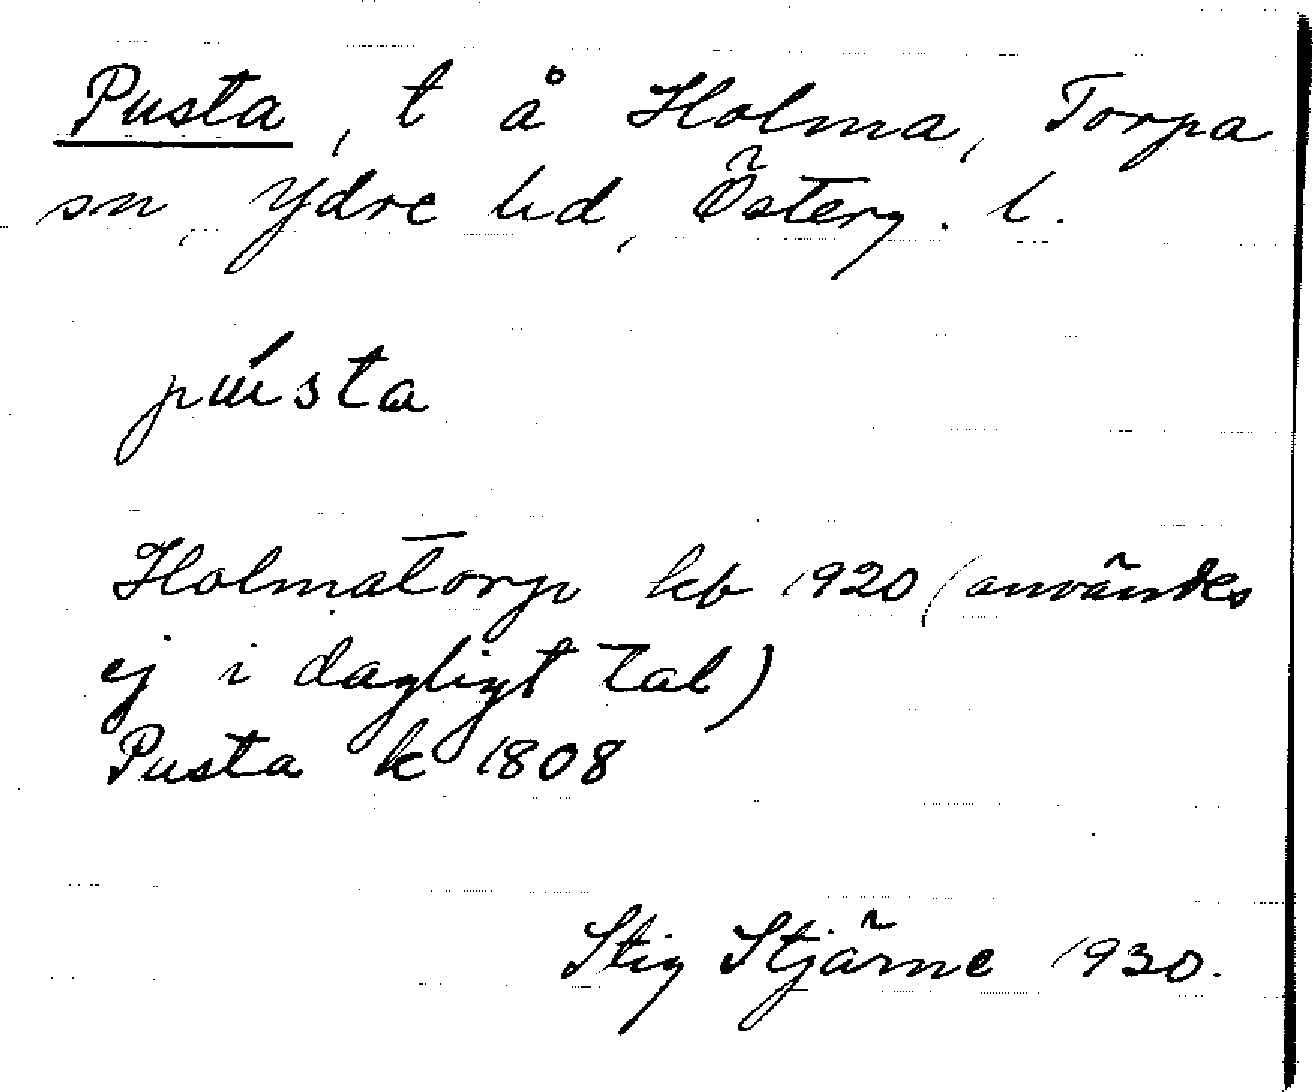 Pusta, t å Holma, Torpa
sn, Ydre hd, Österg. l.
pɯ́sta
Holmatorp kb 1920 (användes
ej i dagligt tal)
Pusta k 1808
Stig Stjärne 1930.